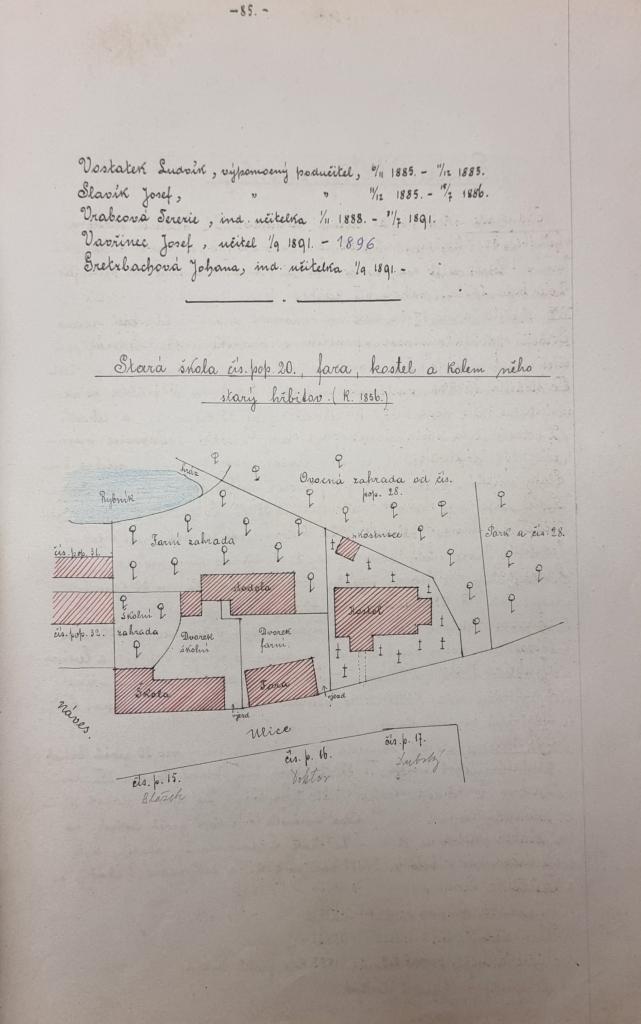 -85.-
Vostatek Ludvík, výpomocný podučitel, 6/11 1885. - 11/12 1885.
Slavík Josef, " " 11/12 1885. - 15/7 1886.
Vrabcová Terezie, ind. učitelka 1/11 1888. - 31/7 1891.
Vavřinec Josef, učitel 1/9 1891. - 1896
Gretzbachová Johana, ind. učitelka 1/9 1891. -
Stará škola čís. pop. 20., fara, kostel a kolem něho
starý hřbitov. (R. 1856.)
hráz
Rybník
Ovocná zahrada od čís.
pop. 28.
Farní zahrada
Kostnice
Park a čís. 28.
čís. pop. 31.
Stodola
Kostel
školní
zahrada
čís. pop. 32.
Dvorek
školní
Dvorek
farní
Škola
Fara
vjezd
vjezd
náves.
Ulice
čís. p. 15.
Blažek
čís. p. 16.
Doktor
čís. p. 17.